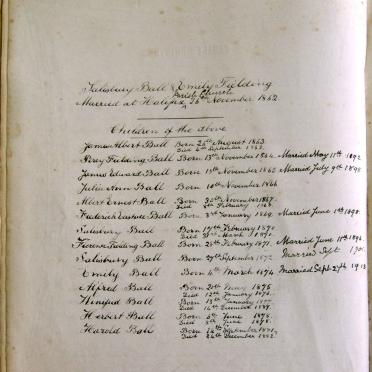 Salisbury Ball & Emily Fielding
Parish Church
Married at Halifax 26th November 1862
Children of the above
James Albert Ball Born 26th August 1863
Died 4th September 1863
Percy Fielding Ball Born 13th November 1864 Married May 11th 1892
James Edward Ball Born 15th November 1865 Married July 9th 1898
Julia Ann Ball Born 10th November 1866
Albert Ernest Ball Born November 1867
Died February 1868
Frederick Eastoe Ball Born 3rd January 1869 Married June 1st 1898
Salisbury Ball Born 17th February 1870
Died March 1871
Fielding Ball Born 28th February 1871 Married June 11th 1896
Salisbury Ball Born 29th September 1872 Married Sept
Emily Ball Born 4th March 1874 Married Sept 27th 1913
Alfred Ball Born 20th May 1875
Died 12th January 1876
Winifred Ball Born 13th January
Died 14th December
Herbert Ball Born 6th June 1878
Died 8th June 1878
Harold Ball Born 14th September
Died 26th December 1882